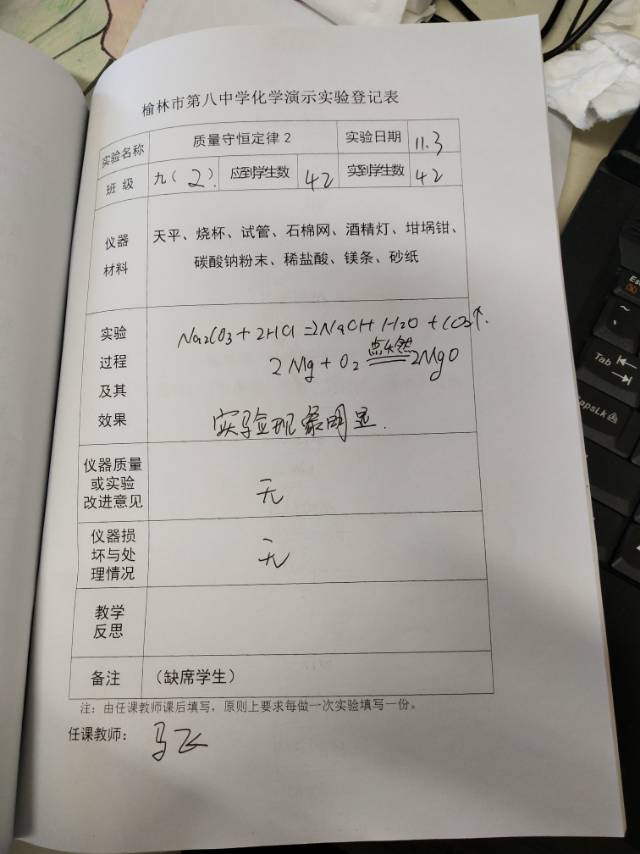 榆林市第八中学化学演示实验登记表
实验名称 质量守恒定律2 实验日期 11.3
班级 九（2） 应到学生数 42 实到学生数 42
仪器材料 天平、烧杯、试管、石棉网、酒精灯、坩埚钳、
碳酸钠粉末、稀盐酸、镁条、砂纸
实验过程及其效果 Na2CO3+2HCl=2NaCl+H2O+CO2↑.
2Mg+O2 点燃 2MgO
实验现象明显.
仪器质量或实验改进意见 无
仪器损坏与处理情况 无
教学反思
备注 （缺席学生）
注：由任课教师课后填写，原则上要求每做一次实验填写一份。
任课教师：马飞
Esc
Tab
CapsLk